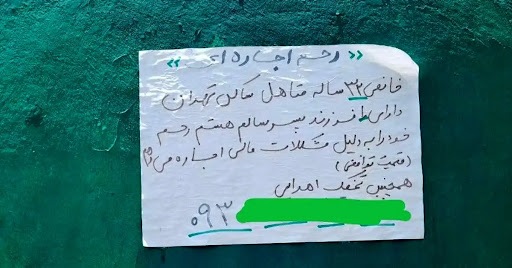 «رحم اجاره ای»
خانمی ۳۲ ساله متاهل ساکن تهران
دارای ۱ فرزند پسر سالم هستم رحم
خود را به دلیل مشکلات مالی اجاره می‌دم
(قیمت توافقی)
همچنین تخمک اهدایی
۰۹۳